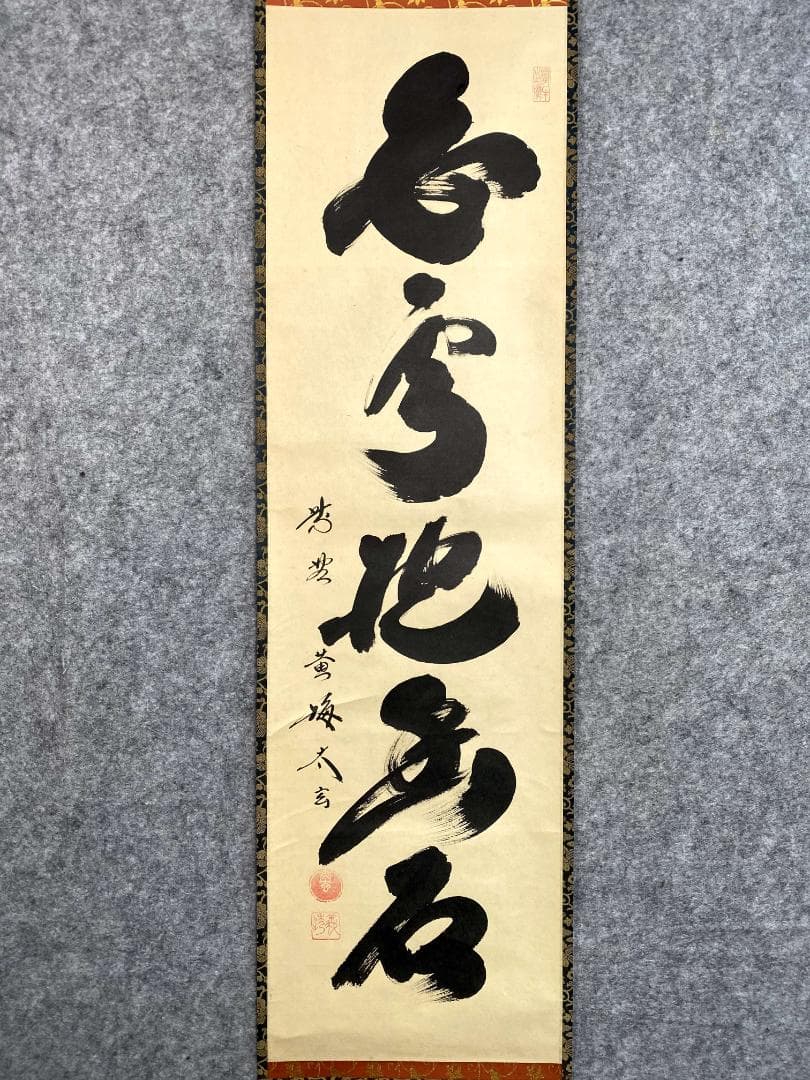 白雲抱幽石
紫野 黄梅太玄